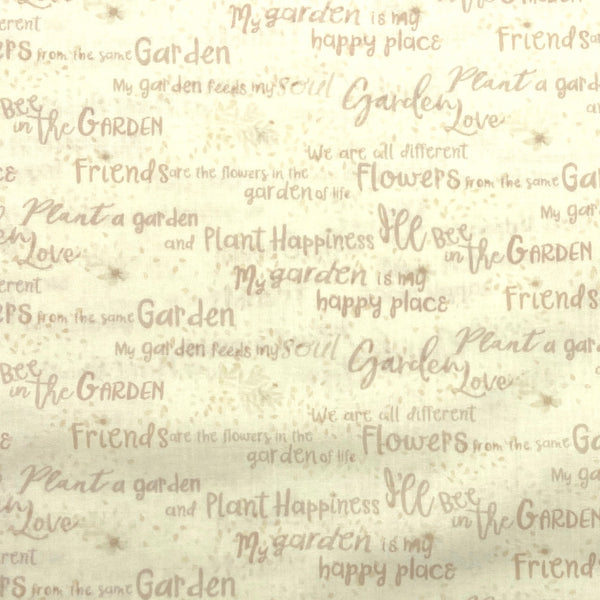 My garden is my
happy place
erent
ers from the same Garden
Friends are
My garden feeds my soul
Garden Love
Plant a garden
Bee
in the GARDEN
We are all different
Friends are the flowers in the
garden of life
Flowers from the same Ga
My gar
Plant a garden
and Plant Happiness
I'll Bee
in the GARDEN
en
Love
My garden is my
happy place
erent
ers from the same Garden
Friends
My garden feeds my soul
Garden Love
Plant a gar
Bee
in the GARDEN
We are all different
Friends are the flowers in the
garden of life
Flowers from the same G
My ga
Plant a garden
and Plant Happiness
I'll Bee
in the GARDEN
en
Love
My garden is my
happy place
erent
ers from the same Garden
Friends